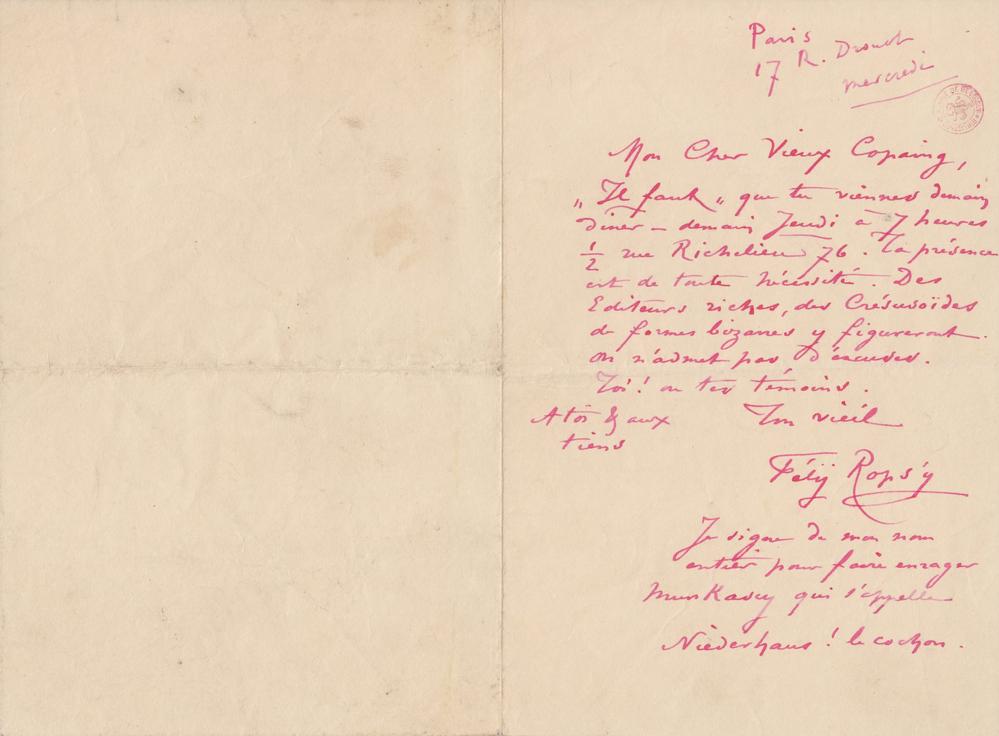 Paris
17 R. Drouot
mercredi
Mon Cher Vieux Copaing,
„ Il faut „ que tu viennes demain
diner – demain Jeudi à 7 heures
½ rue Richelieu 76. Ta présence
est de toute nécessité. Des
Editeurs riches, des Crésusoïdes
de formes bizarres y figureront.
On n'admet pas d'excuses.
Toi! ou tes témoins.
A toi & aux
tiens
Ton vieil
Félÿ Rops'y
Je signe de mon nom
entier pour faire enrager
MunKascy qui s'appelle
Niederhaus! le cochon.